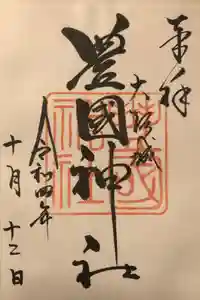 奉拝
大阪城
豊國神社
令和四年
十月十二日